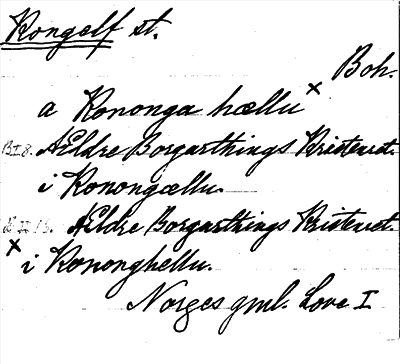 Kongelf st.
Boh.
a Kononga hællu x
B I 8. Ældre Borgarthings Kristenret.
i Konongællu.
B II 15. Ældre Borgarthings Kristenret.
x i Kononghellu.
Norges gml. Love I